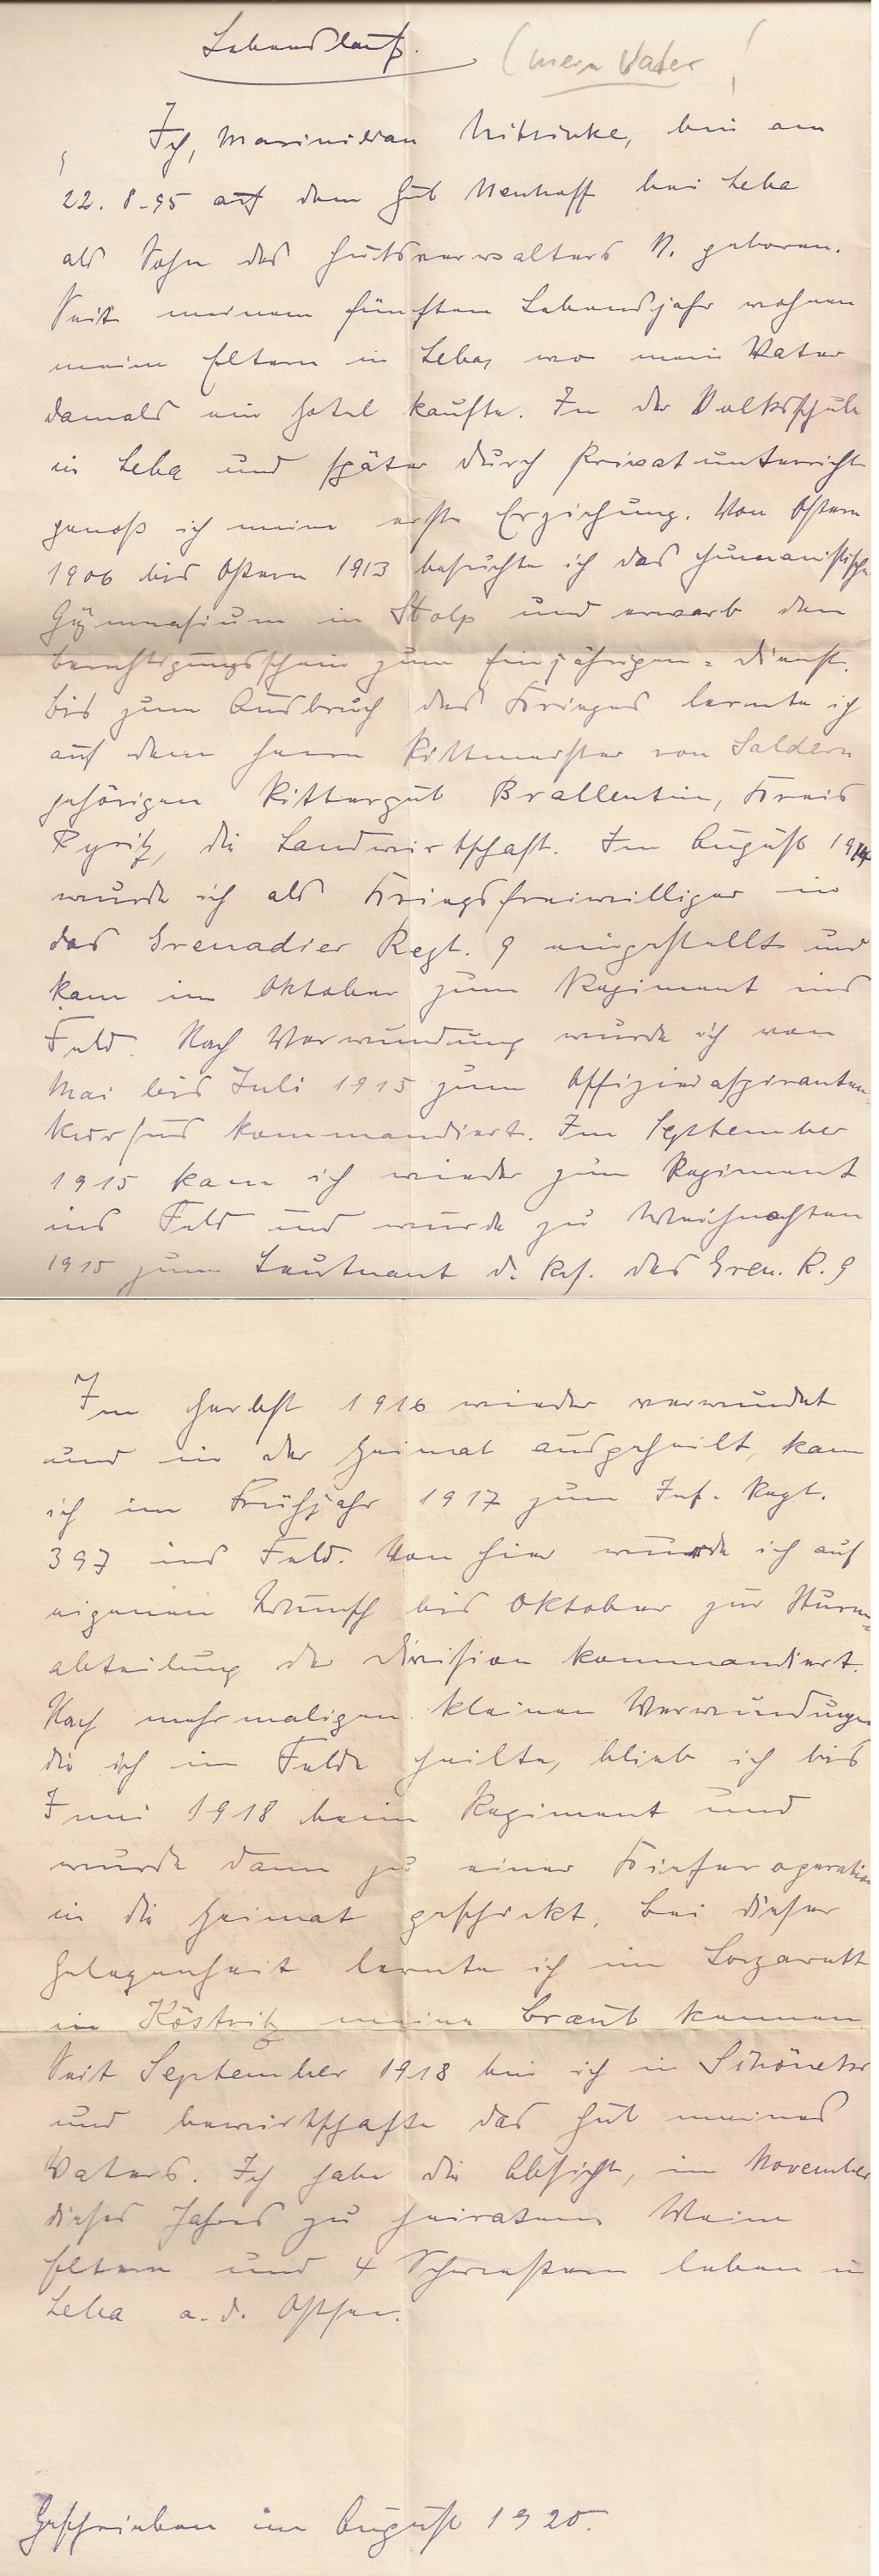 Lebenslauf. (mein Vater!)
Ich, Maximilian Nitschke, bin am
22. 8. 95 auf dem Gut Neuhoff bei Leba
als Sohn des Gutsverwalters N. geboren.
Seit meinem fünften Lebensjahr wohnen
meine Eltern in Leba, wo mein Vater
damals ein Hotel kaufte. In der Volksschule
in Leba und später durch Privatunterricht
genoß ich meine erste Erziehung. Von Ostern
1906 bis Ostern 1913 besuchte ich das humanistische
Gymnasium in Stolp und erwarb den
Berechtigungsschein zum Einjährigen-Dienst.
Bis zum Ausbruch des Krieges lernte ich
auf dem Herrn Rittmeister von Saldern
gehörigen Rittergut Brallentin, Kreis
Pyritz, die Landwirtschaft. Im August 1914
wurde ich als Kriegsfreiwilliger in
das Grenadier Regt. 9 eingestellt und
kam im Oktober zum Regiment ins
Feld. Nach Verwundung wurde ich von
Mai bis Juli 1915 zum Offizieraspiranten-
kursus kommandiert. Im September
1915 kam ich wieder zum Regiment
ins Feld und wurde zu Weihnachten
1915 zum Leutnant d. Res. des Gren. R. 9
Im Herbst 1916 wieder verwundet
und in der Heimat ausgeheilt, kam
ich im Frühjahr 1917 zum Inf. Regt.
397 ins Feld. Von hier wurde ich auf
eigenen Wunsch bis Oktober zur Sturm-
abteilung der Division kommandiert.
Nach mehrmaligen kleinen Verwundungen
die ich im Felde heilte, blieb ich bis
Juni 1918 beim Regiment und
wurde dann zu einer Kieferoperation
in die Heimat geschickt. Bei dieser
Gelegenheit lernte ich im Lazarett
in Köstritz meine Braut kennen
Seit September 1918 bin ich in Schönehr
und bewirtschafte das Gut meines
Vaters. Ich habe die Absicht, im November
dieses Jahres zu heiraten. Meine
Eltern und 4 Schwestern leben in
Leba a. d. Ostsee.
Geschrieben im August 1920.